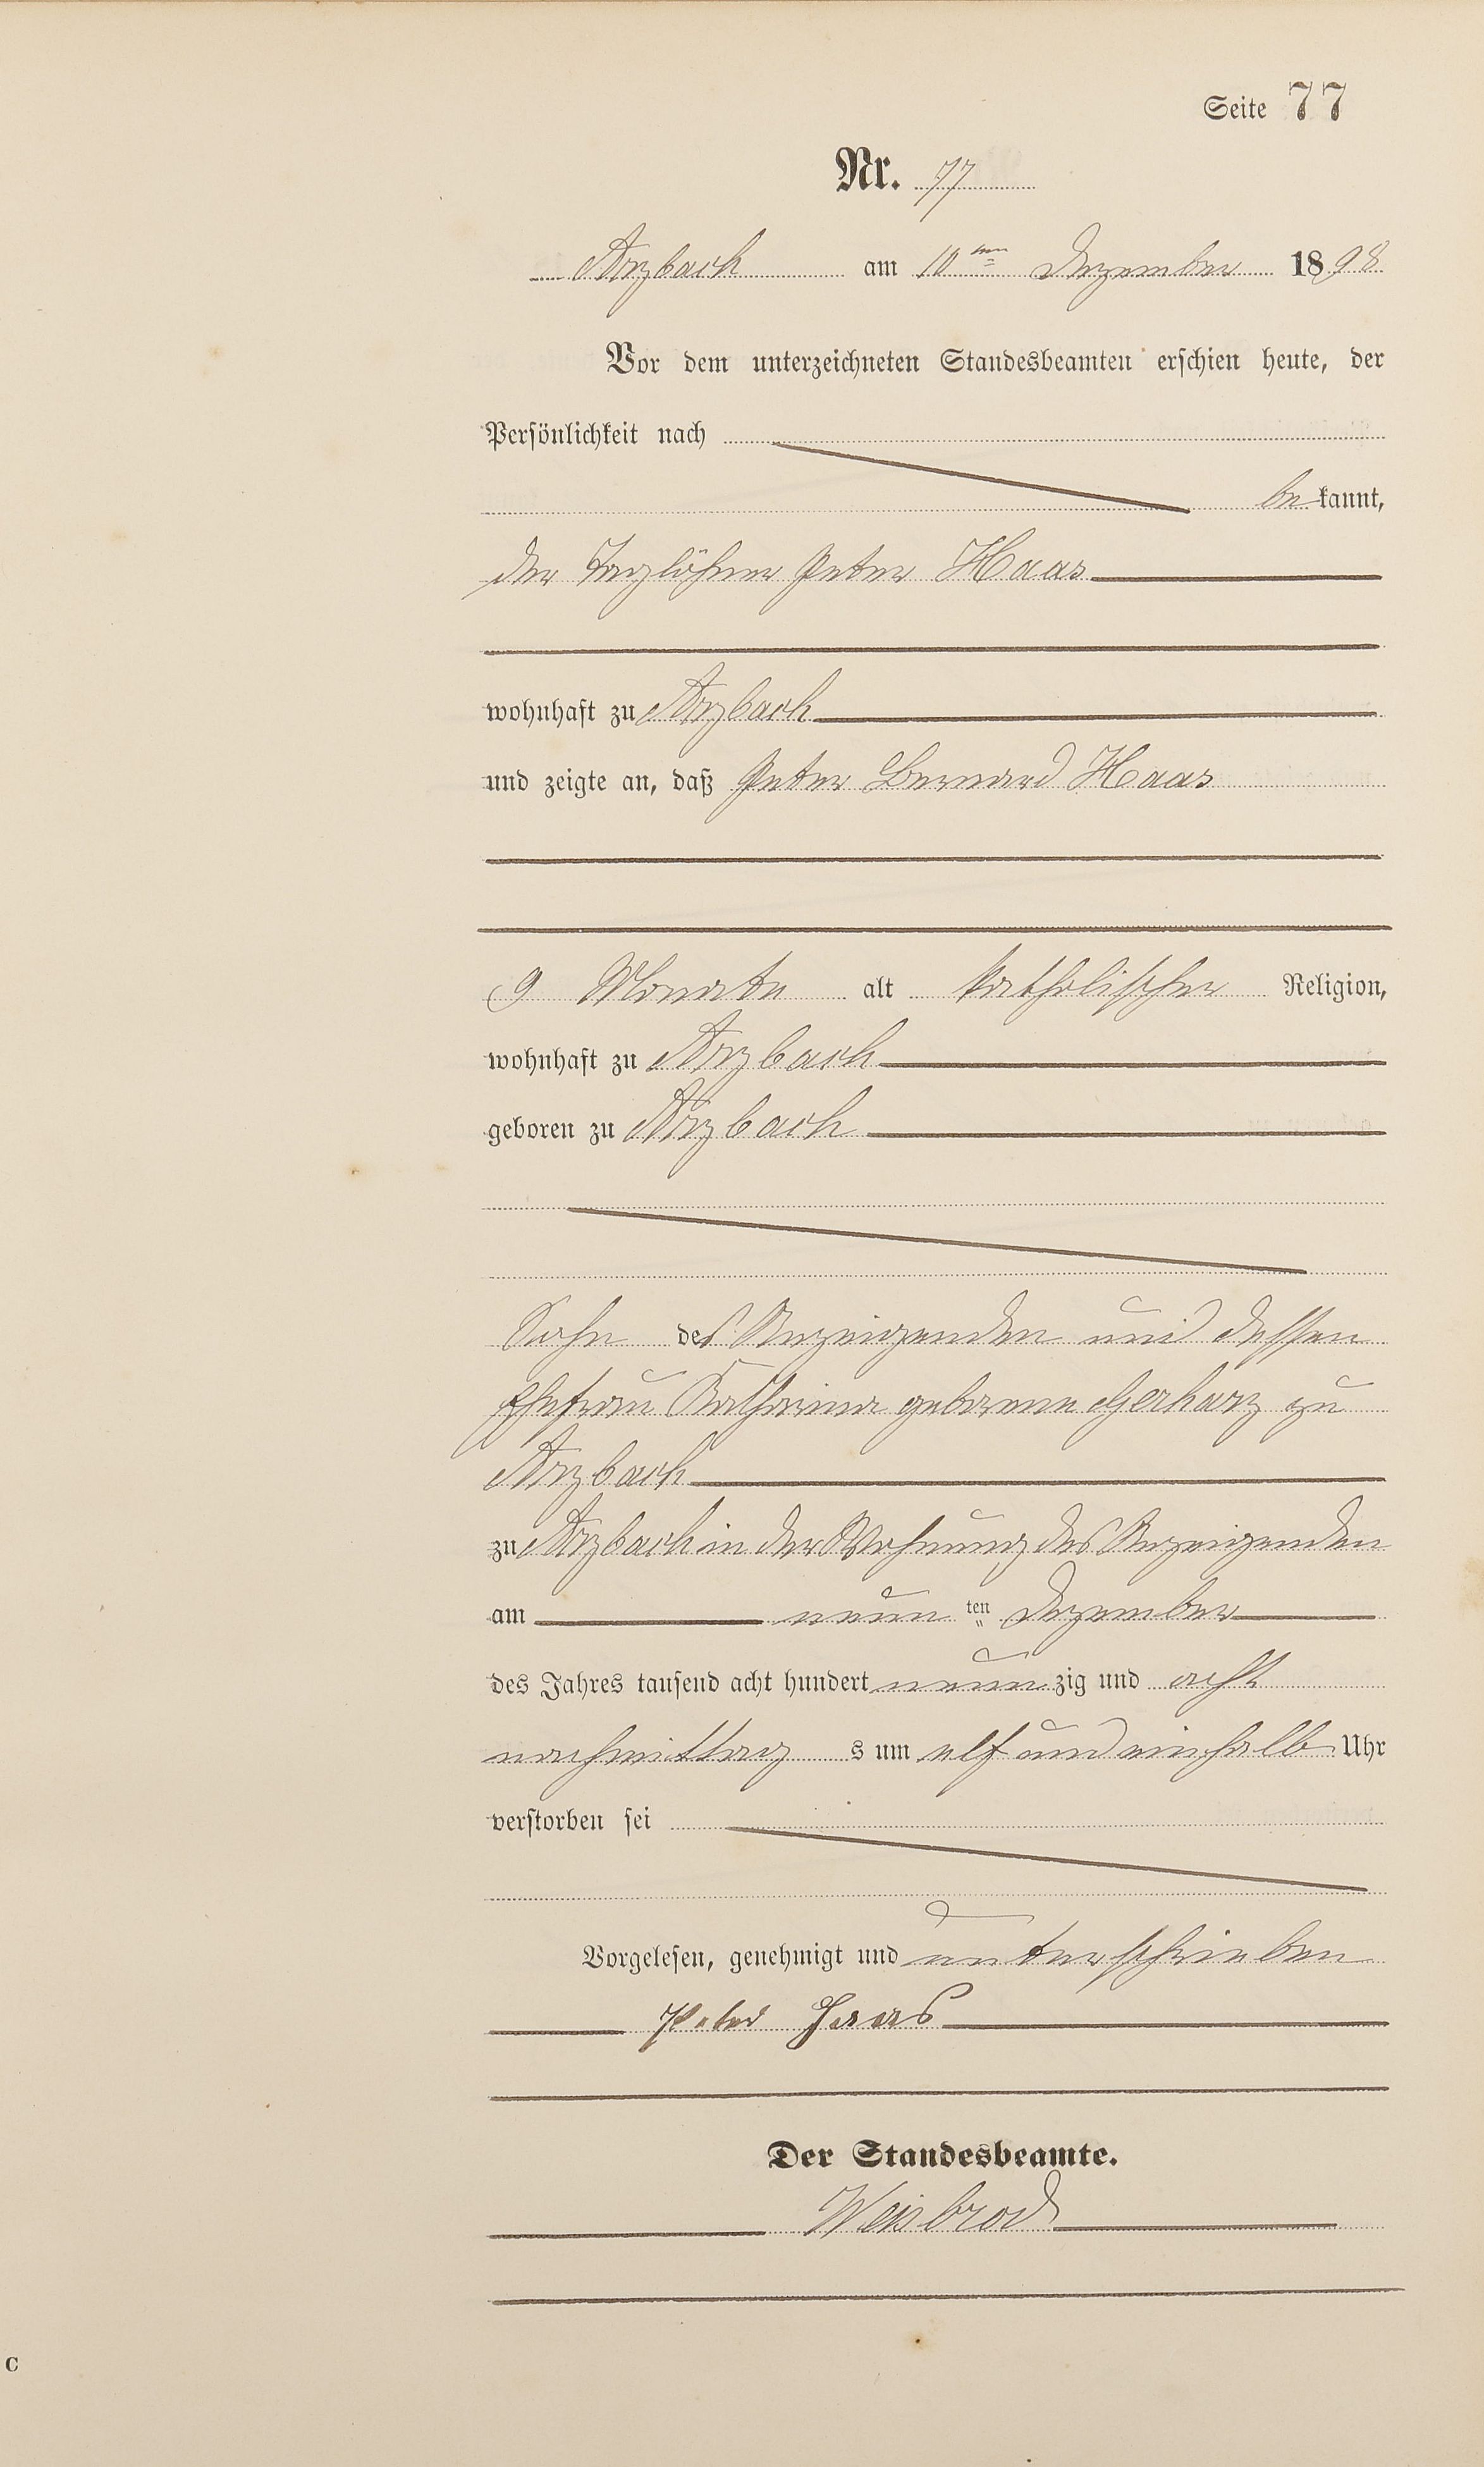 Seite 77
Nr. 77
Arzbach am 10ten Dezember 1898
Vor dem unterzeichneten Standesbeamten erschien heute, der
Persönlichkeit nach
bekannt,
der Taglöhner Peter Haas
wohnhaft zu Arzbach
und zeigte an, daß Peter Bernard Haas
9 Monate alt katholischer Religion,
wohnhaft zu Arzbach
geboren zu Arzbach
Sohn des Anzeigenden und dessen
Ehefrau Katharina geborene Gerharz zu
Arzbach
zu Arzbach in der Wohnung des Anzeigenden
am neunten Dezember
des Jahres tausend acht hundert neunzig und acht
nachmittags um elf und einhalb Uhr
verstorben sei
Vorgelesen, genehmigt und unterschrieben
Peter Haas
Der Standesbeamte.
Weisbrod
C